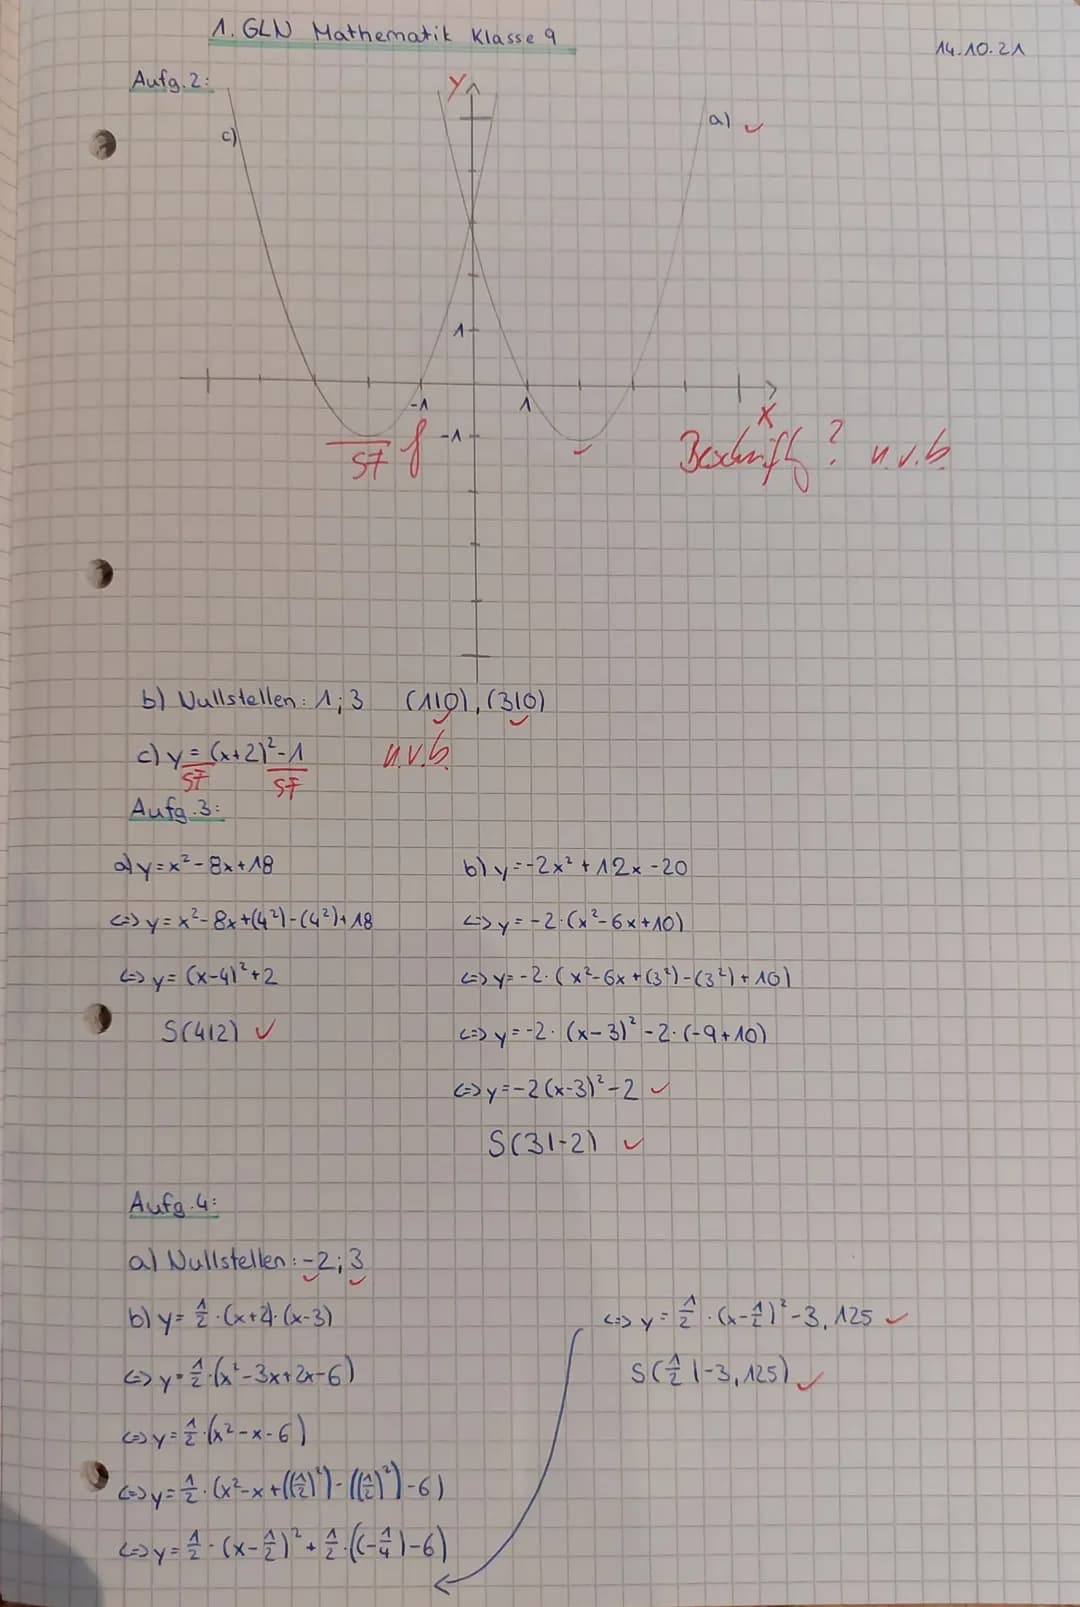 1. GLN Mathematik Klasse 9
14.10.21
Aufg. 2:
y
c)
a)
1
-1
1
x
-1
SF f
Beschriftg? n.v.b.
b) Nullstellen: 1; 3 (1|0), (3|0)
c) y = (x+2)²-1 n.v.b.
SF SF
Aufg. 3:
a) y = x² - 8x + 18
<=> y = x² - 8x + (4²) - (4²) + 18
<=> y = (x-4)² + 2
S(4|2)
b) y = -2x² + 12x - 20
<=> y = -2·(x² - 6x + 10)
<=> y = -2·(x² - 6x + (3²) - (3²) + 10)
<=> y = -2·(x-3)² - 2·(-9+10)
<=> y = -2(x-3)² - 2
S(3|-2)
Aufg. 4:
a) Nullstellen: -2; 3
b) y = 1/2·(x+2)·(x-3)
<=> y = 1/2·(x² - 3x + 2x - 6)
<=> y = 1/2·(x² - x - 6)
<=> y = 1/2·(x² - x + ((1/2)²) - ((1/2)²) - 6)
<=> y = 1/2·(x - 1/2)² + 1/2·((-1/4) - 6)
<=> y = 1/2·(x - 1/2)² - 3,125
S(1/2|-3,125)